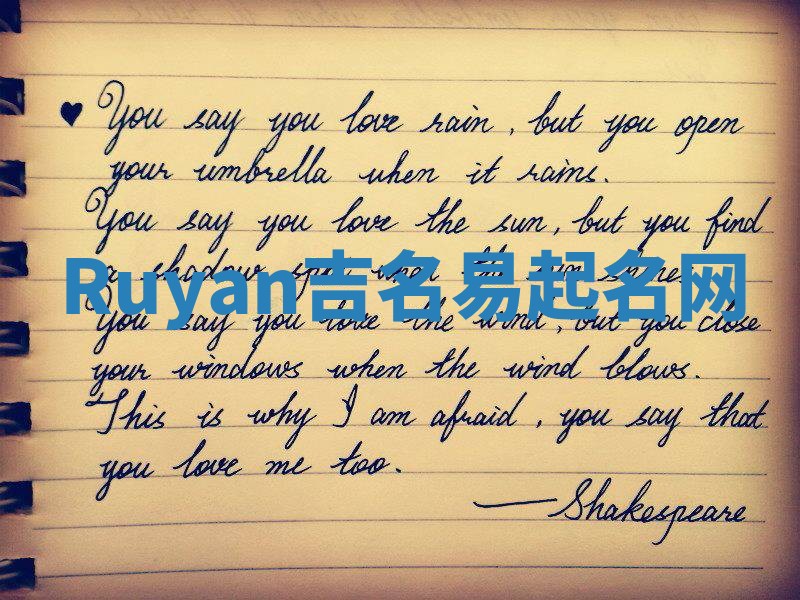 ♥ You say you love rain, but you open
your umbrella when it rains.
You say you love the sun, but you find
a shadow spot when the sun shines.
Ruyan吉名易起名网
You say you love the wind, but you close
your windows when the wind blows.
This is why I am afraid, you say that
you love me too.
— Shakespeare